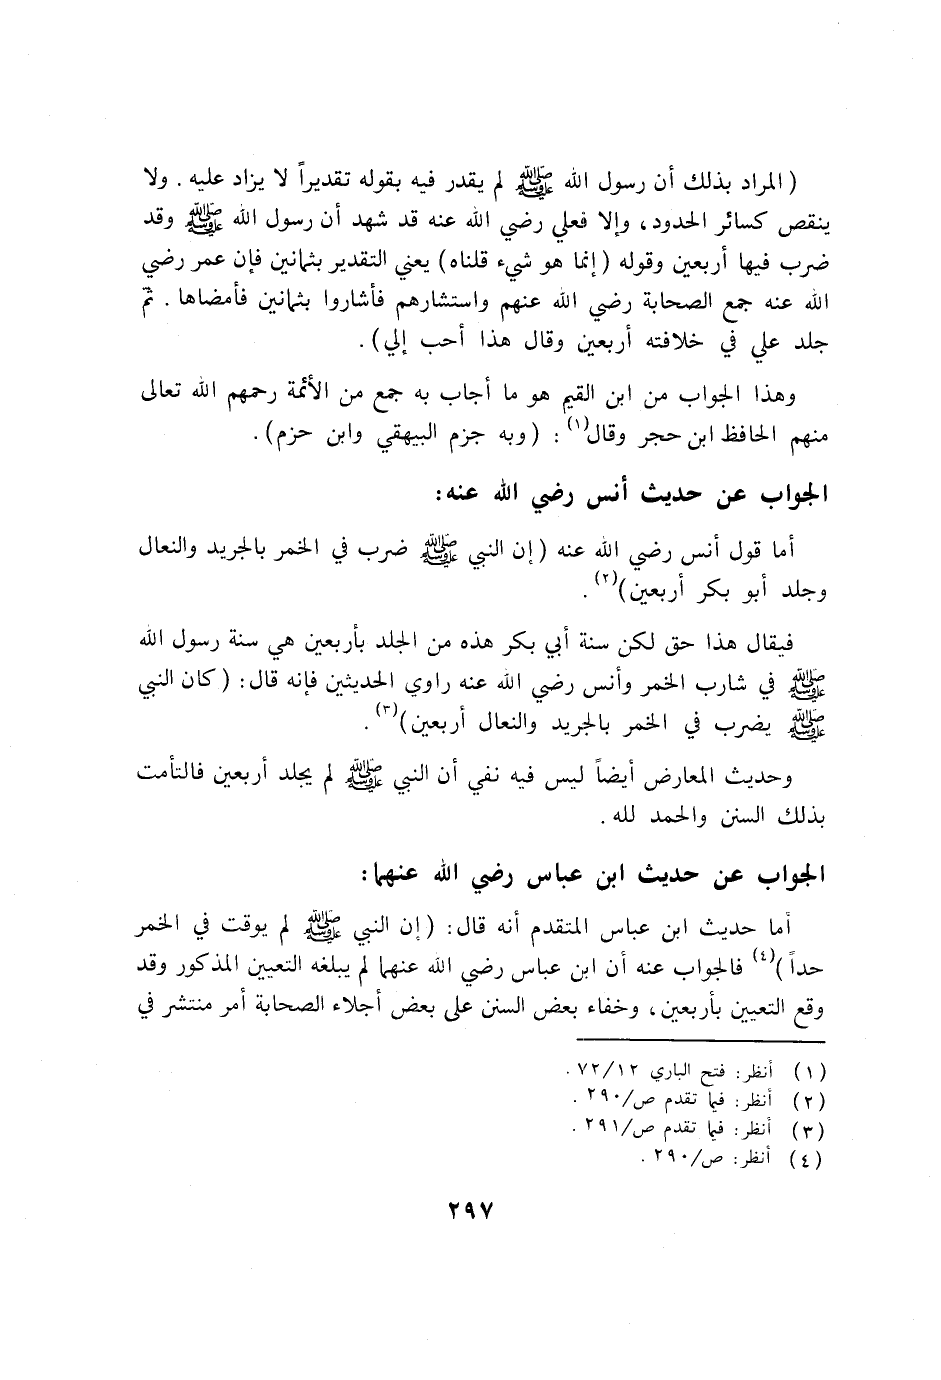 ( المراد بذلك أن رسول الله ﷺ لم يقدر فيه بقوله تقديراً لا يزاد عليه . ولا
ينقص كسائر الحدود، وإلا فعلي رضي الله عنه قد شهد أن رسول الله ﷺ وقد
ضرب فيها أربعين وقوله (إنما هو شيء قلناه) يعني التقدير بثمانين فإن عمر رضي
الله عنه جمع الصحابة رضي الله عنهم واستشارهم فأشاروا بثمانين فأمضاها . ثم
جلد علي في خلافته أربعين وقال هذا أحب إلي).
وهذا الجواب من ابن القيم هو ما أجاب به جمع من الأئمة رحمهم الله تعالى
منهم الحافظ ابن حجر وقال(١) : (وبه جزم البيهقي وابن حزم).
الجواب عن حديث أنس رضي الله عنه:
أما قول أنس رضي الله عنه (إن النبي ﷺ ضرب في الخمر بالجريد والنعال
وجلد أبو بكر أربعين)(٢) .
فيقال هذا حق لكن سنة أبي بكر هذه من الجلد بأربعين هي سنة رسول الله
ﷺ في شارب الخمر وأنس رضي الله عنه راوي الحديثين فإنه قال: (كان النبي
ﷺ يضرب في الخمر بالجريد والنعال أربعين)(٣).
وحديث المعارض أيضاً ليس فيه نفي أن النبي ﷺ لم يجلد أربعين فالتأمت
بذلك السنن والحمد لله .
الجواب عن حديث ابن عباس رضي الله عنهما:
أما حديث ابن عباس المتقدم أنه قال: (إن النبي ﷺ لم يوقت في الخمر
حداً )(٤) فالجواب عنه أن ابن عباس رضي الله عنهما لم يبلغه التعيين المذكور وقد
وقع التعيين بأربعين، وخفاء بعض السنن على بعض أجلاء الصحابة أمر منتشر في
(١) أنظر: فتح الباري ٧٢/١٢ .
(٢) أنظر: فيما تقدم ص/٢٩٠ .
(٣) أنظر: فيما تقدم ص/٢٩١ .
(٤) أنظر: ص/٢٩٠ .
٢٩٧